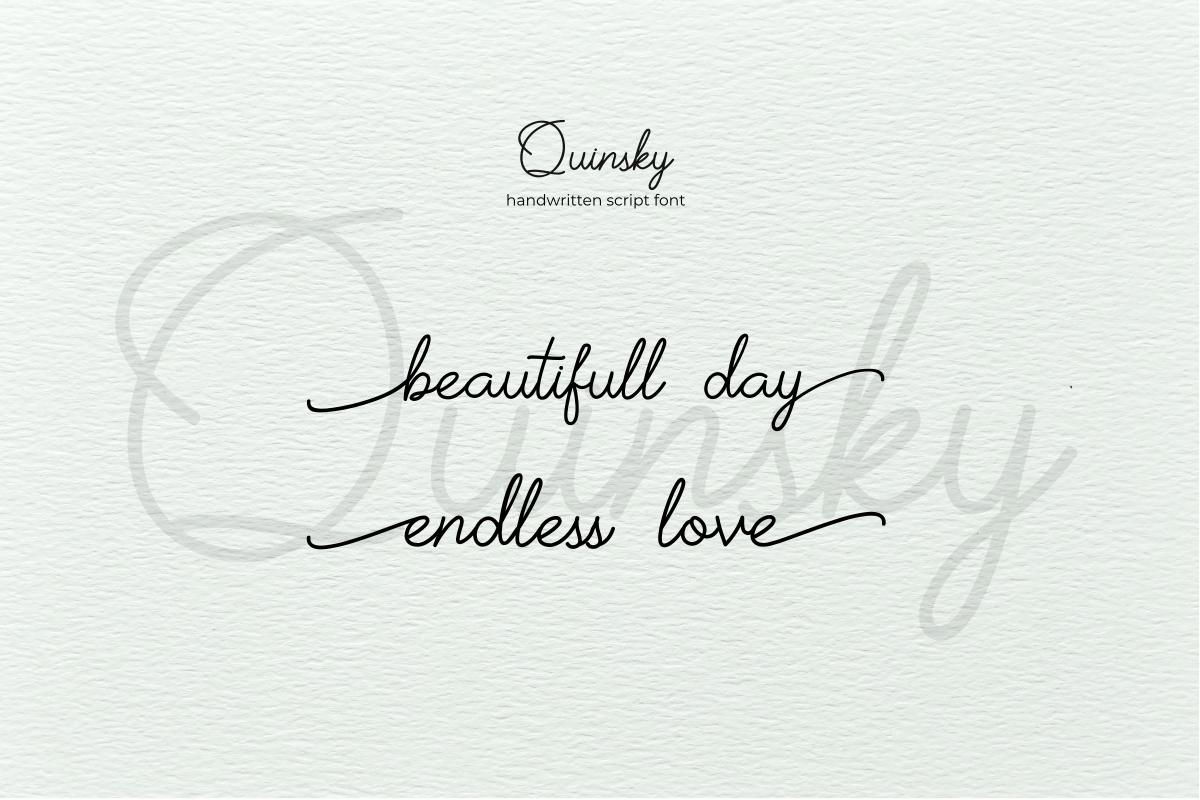 Quinsky
handwritten script font
Quinsky
beautifull day
endless love